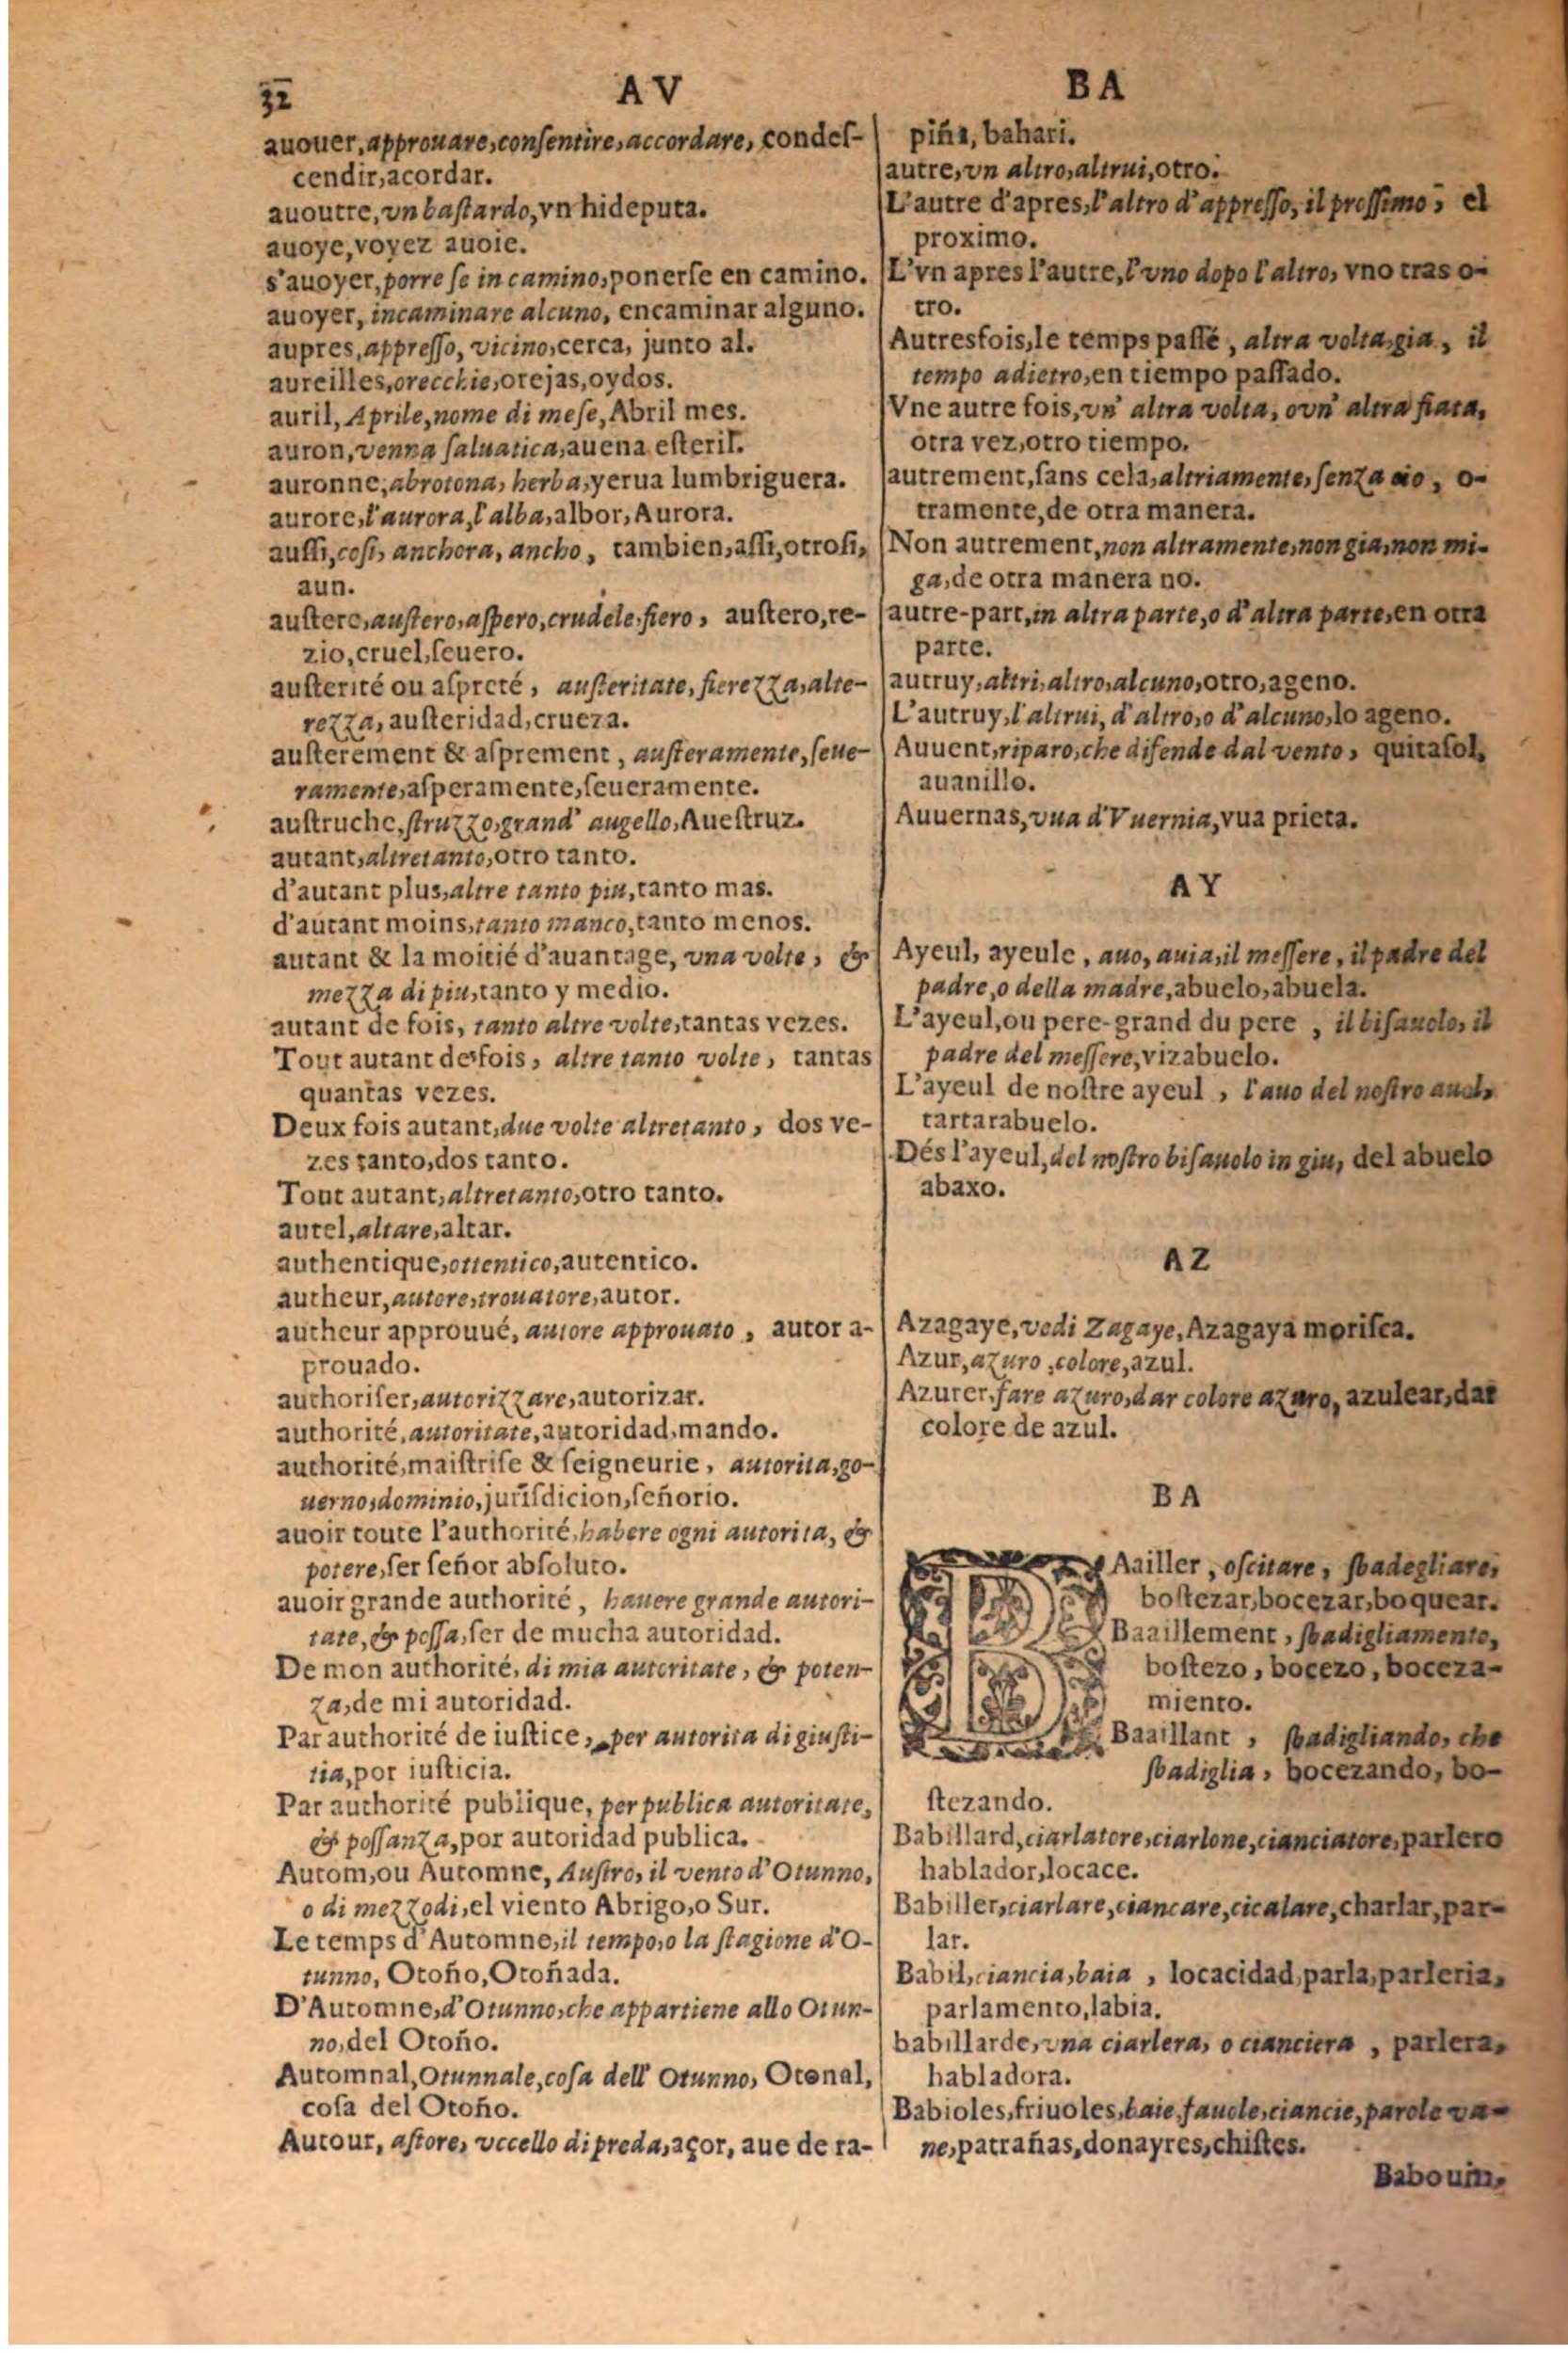 32
AV
BA
auouer, approuare, consentire, accordare, condeſ-
cendir, acordar.
auoutre, vn baſtardo, vn hideputa.
auoye, voyez auoie.
s'auoyer, porre ſe in camino, ponerſe en camino.
auoyer, incaminare alcuno, encaminar alguno.
aupres, appreſſo, vicino, cerca, junto al.
aureilles, orecchie, orejas, oydos.
auril, Aprile, nome di meſe, Abril mes.
auron, venna ſaluatica, auena eſteril.
auronne, abrotona, herba, yerua lumbriguera.
aurore, l'aurora, l'alba, albor, Aurora.
auſſi, coſi, anchora, ancho, tambien, aſſi, otroſi,
aun.
auſtere, auſtero, aſpero, crudele, fiero, auſtero, re-
zio, cruel, ſeuero.
auſterité ou aſpreté, auſteritate, fierezza, alte-
rezza, auſteridad, crueza.
auſterement & aſprement, auſteramente, ſeue-
ramente, aſperamente, ſeueramente.
auſtruche, ſtruzzo, grand' augello, Aueſtruz.
autant, altretanto, otro tanto.
d'autant plus, altre tanto piu, tanto mas.
d'autant moins, tanto manco, tanto menos.
autant & la moitié d'auantage, vna volte, &
mezza di piu, tanto y medio.
autant de fois, tanto altre volte, tantas vezes.
Tout autant de fois, altre tanto volte, tantas
quantas vezes.
Deux fois autant, due volte altretanto, dos ve-
zes tanto, dos tanto.
Tout autant, altretanto, otro tanto.
autel, altare, altar.
authentique, ottentico, autentico.
autheur, autore, trouatore, autor.
autheur approuué, autore approuato, autor a-
prouado.
authoriſer, autorizzare, autorizar.
authorité, autoritate, autoridad, mando.
authorité, maiſtriſe & ſeigneurie, autorita, go-
uerno, dominio, juriſdicion, ſeñorio.
auoir toute l'authorité, habere ogni autorita, &
potere, ſer ſeñor abſoluto.
auoir grande authorité, hauere grande autori-
tate, & poſſa, ſer de mucha autoridad.
De mon authorité, di mia autoritate, & poten-
za, de mi autoridad.
Par authorité de iuſtice, per autorita di giuſti-
tia, por iuſticia.
Par authorité publique, per publica autoritate,
& poſſanza, por autoridad publica.
Autom, ou Automne, Auſtro, il vento d'Otunno,
o di mezzodi, el viento Abrigo, o Sur.
Le temps d'Automne, il tempo, o la ſtagione d'O-
tunno, Otoño, Otoñada.
D'Automne, d'Otunno, che appartiene allo Otun-
no, del Otoño.
Automnal, Otunnale, coſa dell' Otunno, Otonal,
coſa del Otoño.
Autour, aſtore, vccello di preda, açor, aue de ra-
piña, bahari.
autre, vn altro, altrui, otro.
L'autre d'apres, l'altro d'appreſſo, il proſſimo, el
proximo.
L'vn apres l'autre, l'vno dopo l'altro, vno tras o-
tro.
Autresfois, le temps paſſé, altra volta, gia, il
tempo adietro, en tiempo paſſado.
Vne autre fois, vn' altra volta, ovn' altra fiata,
otra vez, otro tiempo.
autrement, ſans cela, altriamente, ſenza cio, o-
tramente, de otra manera.
Non autrement, non altramente, non gia, non mi-
ga, de otra manera no.
autre-part, in altra parte, o d'altra parte, en otra
parte.
autruy, altri, altro, alcuno, otro, ageno.
L'autruy, l'altrui, d'altro, o d'alcuno, lo ageno.
Auuent, riparo, che difende dal vento, quitaſol,
auanillo.
Auuernas, vua d'Vuernia, vua prieta.
AY
Ayeul, ayeule, auo, auia, il meſſere, il padre del
padre, o della madre, abuelo, abuela.
L'ayeul, ou pere-grand du pere, il biſauolo, il
padre del meſſere, vizabuelo.
L'ayeul de noſtre ayeul, l'auo del noſtro
tartarabuelo.
Dés l'ayeul, del noſtro biſauolo in giu, del abuelo
abaxo.
AZ
Azagaye, vedi Zagaye, Azagaya moriſca.
Azur, azuro, colore, azul.
Azurer, fare azuro, dar colore azuro, azulear, dar
colore de azul.
BA
BAailler, oſcitare, ſbadegliare,
boſtezar, bocezar, boquear.
Baaillement, ſbadigliamento,
boſtezo, bocezo, boceza-
miento.
Baaillant, ſbadigliando, che
ſbadiglia, bocezando, bo-
ſtezando.
Babillard, ciarlatore, ciarlone, cianciatore, parlero
hablador, locace.
Babiller, ciarlare, ciancare, cicalare, charlar, par-
lar.
Babil, ciancia, baia, locacidad, parla, parleria,
parlamento, labia.
babillarde, vna ciarlera, o cianciera, parlera,
habladora.
Babioles, friuoles, baie, fauole, ciancie, parole va-
ne, patrañas, donayres, chiſtes.
Babouin,